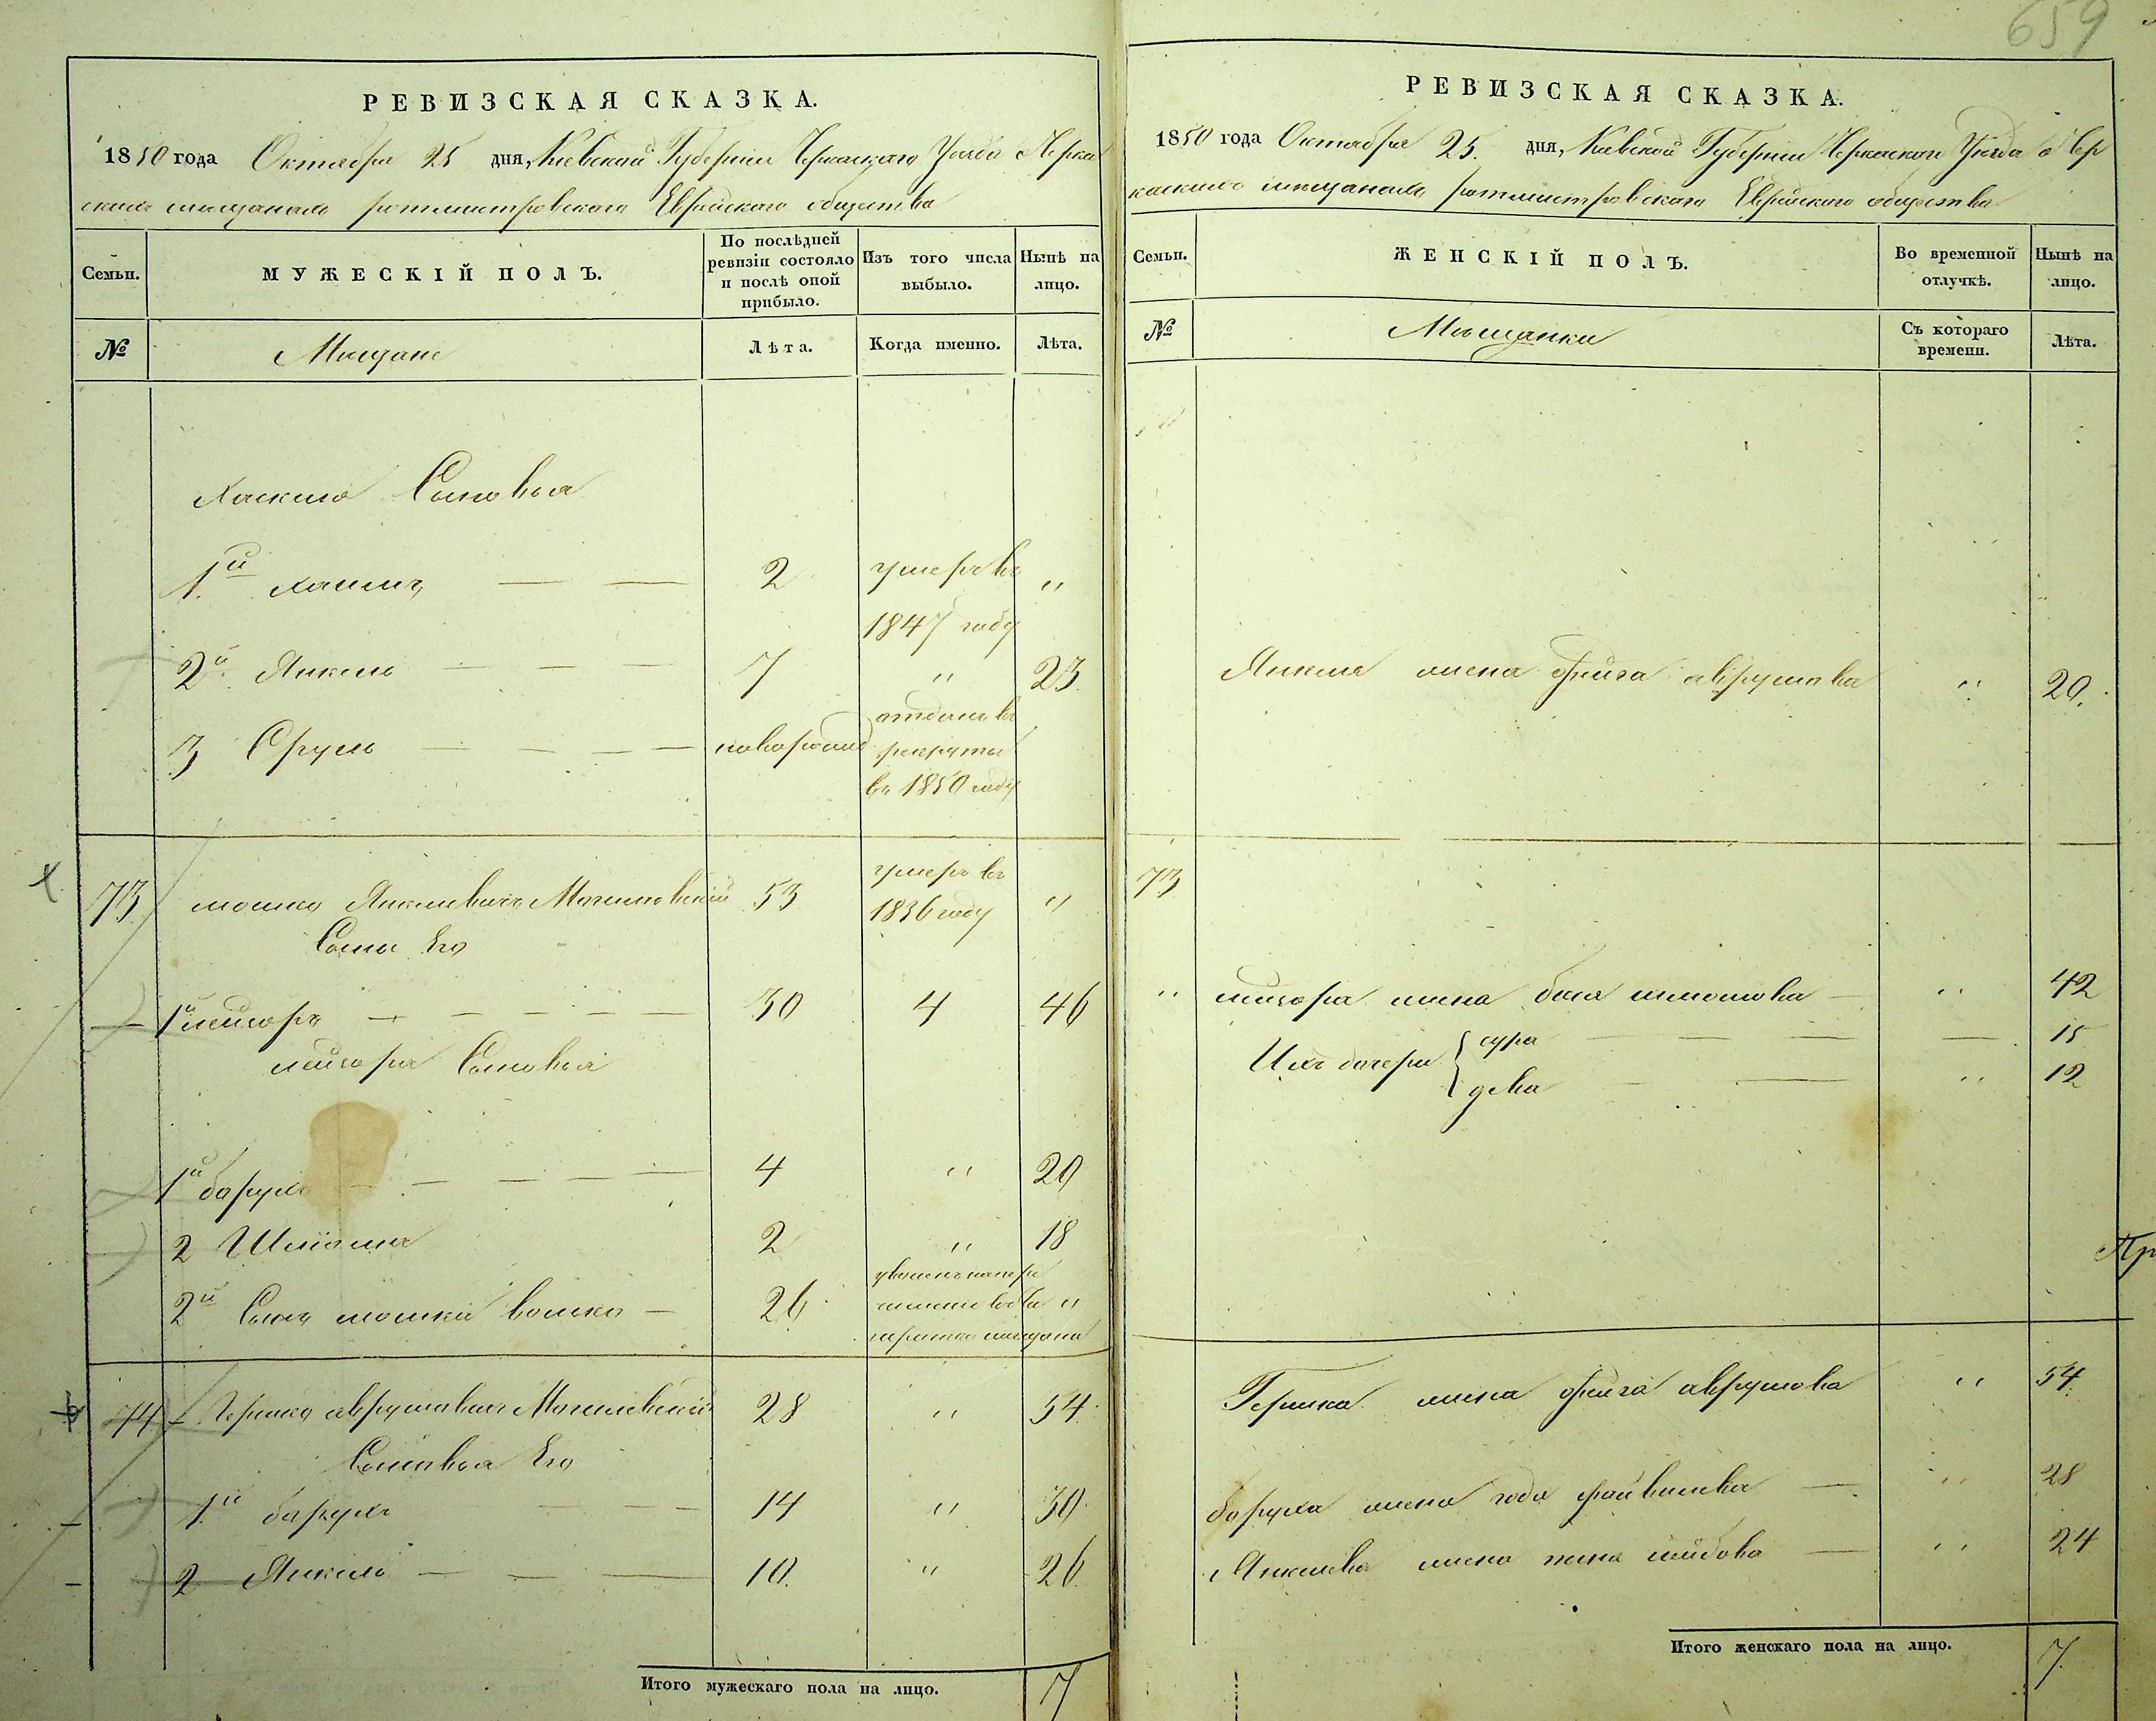 659
РЕВИЗСКАЯ СКАЗКА.
1850 года Октября 25 дня, Киевской Губернии Черкаскаго Уезда Черка
скимъ мещанамъ ротмистровскаго Еврейскаго общества
Семьи.
МУЖЕСКІЙ ПОЛЪ.
По послѣдней ревизіи состояло и послѣ оной прибыло.
Изъ того числа выбыло.
Нынѣ на лицо.
№
Мещане
Лѣта.
Когда именно.
Лѣта.
Хаскеля Сыновья
1й Хаимъ 2 умеръ въ 1847 году "
2й Янкель 7 " 23
3 Сруль новорожд отданъ въ рекруты въ 1850 году
73 мошко Янкелевичъ 53 умеръ въ 1836 году "
Сыны Его
1й лейзоръ 30 4 46
лейзора Сыновья
1й борухъ 4 " 20
2 Шліома 2 " 18
2й Сынъ мошки волько 26 "
74 Гершко аврумовичъ Могилевскій 28 " 54
Сыновья Его
1й борухъ 14 " 30
2 Янкель 10 " 26
Итого мужескаго пола на лицо. 7
РЕВИЗСКАЯ СКАЗКА.
1850 года Октября 25. дня, Киевской Губернии Черкаскаго Уезда о Чер
каскимъ мещанамъ ротмистровскаго Еврейскаго общества
Семьи.
ЖЕНСКІЙ ПОЛЪ.
Во временной отлучкѣ.
Нынѣ на лицо.
№
Мещанки
Съ котораго времени.
Лѣта.
Янкеля жена фейга аврумова " 20.
73
" лейзора жена бася шлиомова " 42
Ихъ дочери сура 15
" 12
Гершка жена фейга аврумова " 54
боруха жена года файвишова " 28
Янкелева жена лейбова " 24
Итого женскаго пола на лицо. 7.
Пр